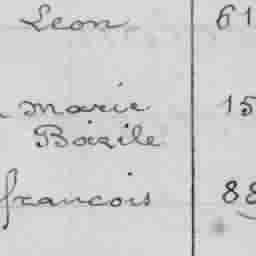 Leon 61
marie 15
Bazile
francois 88